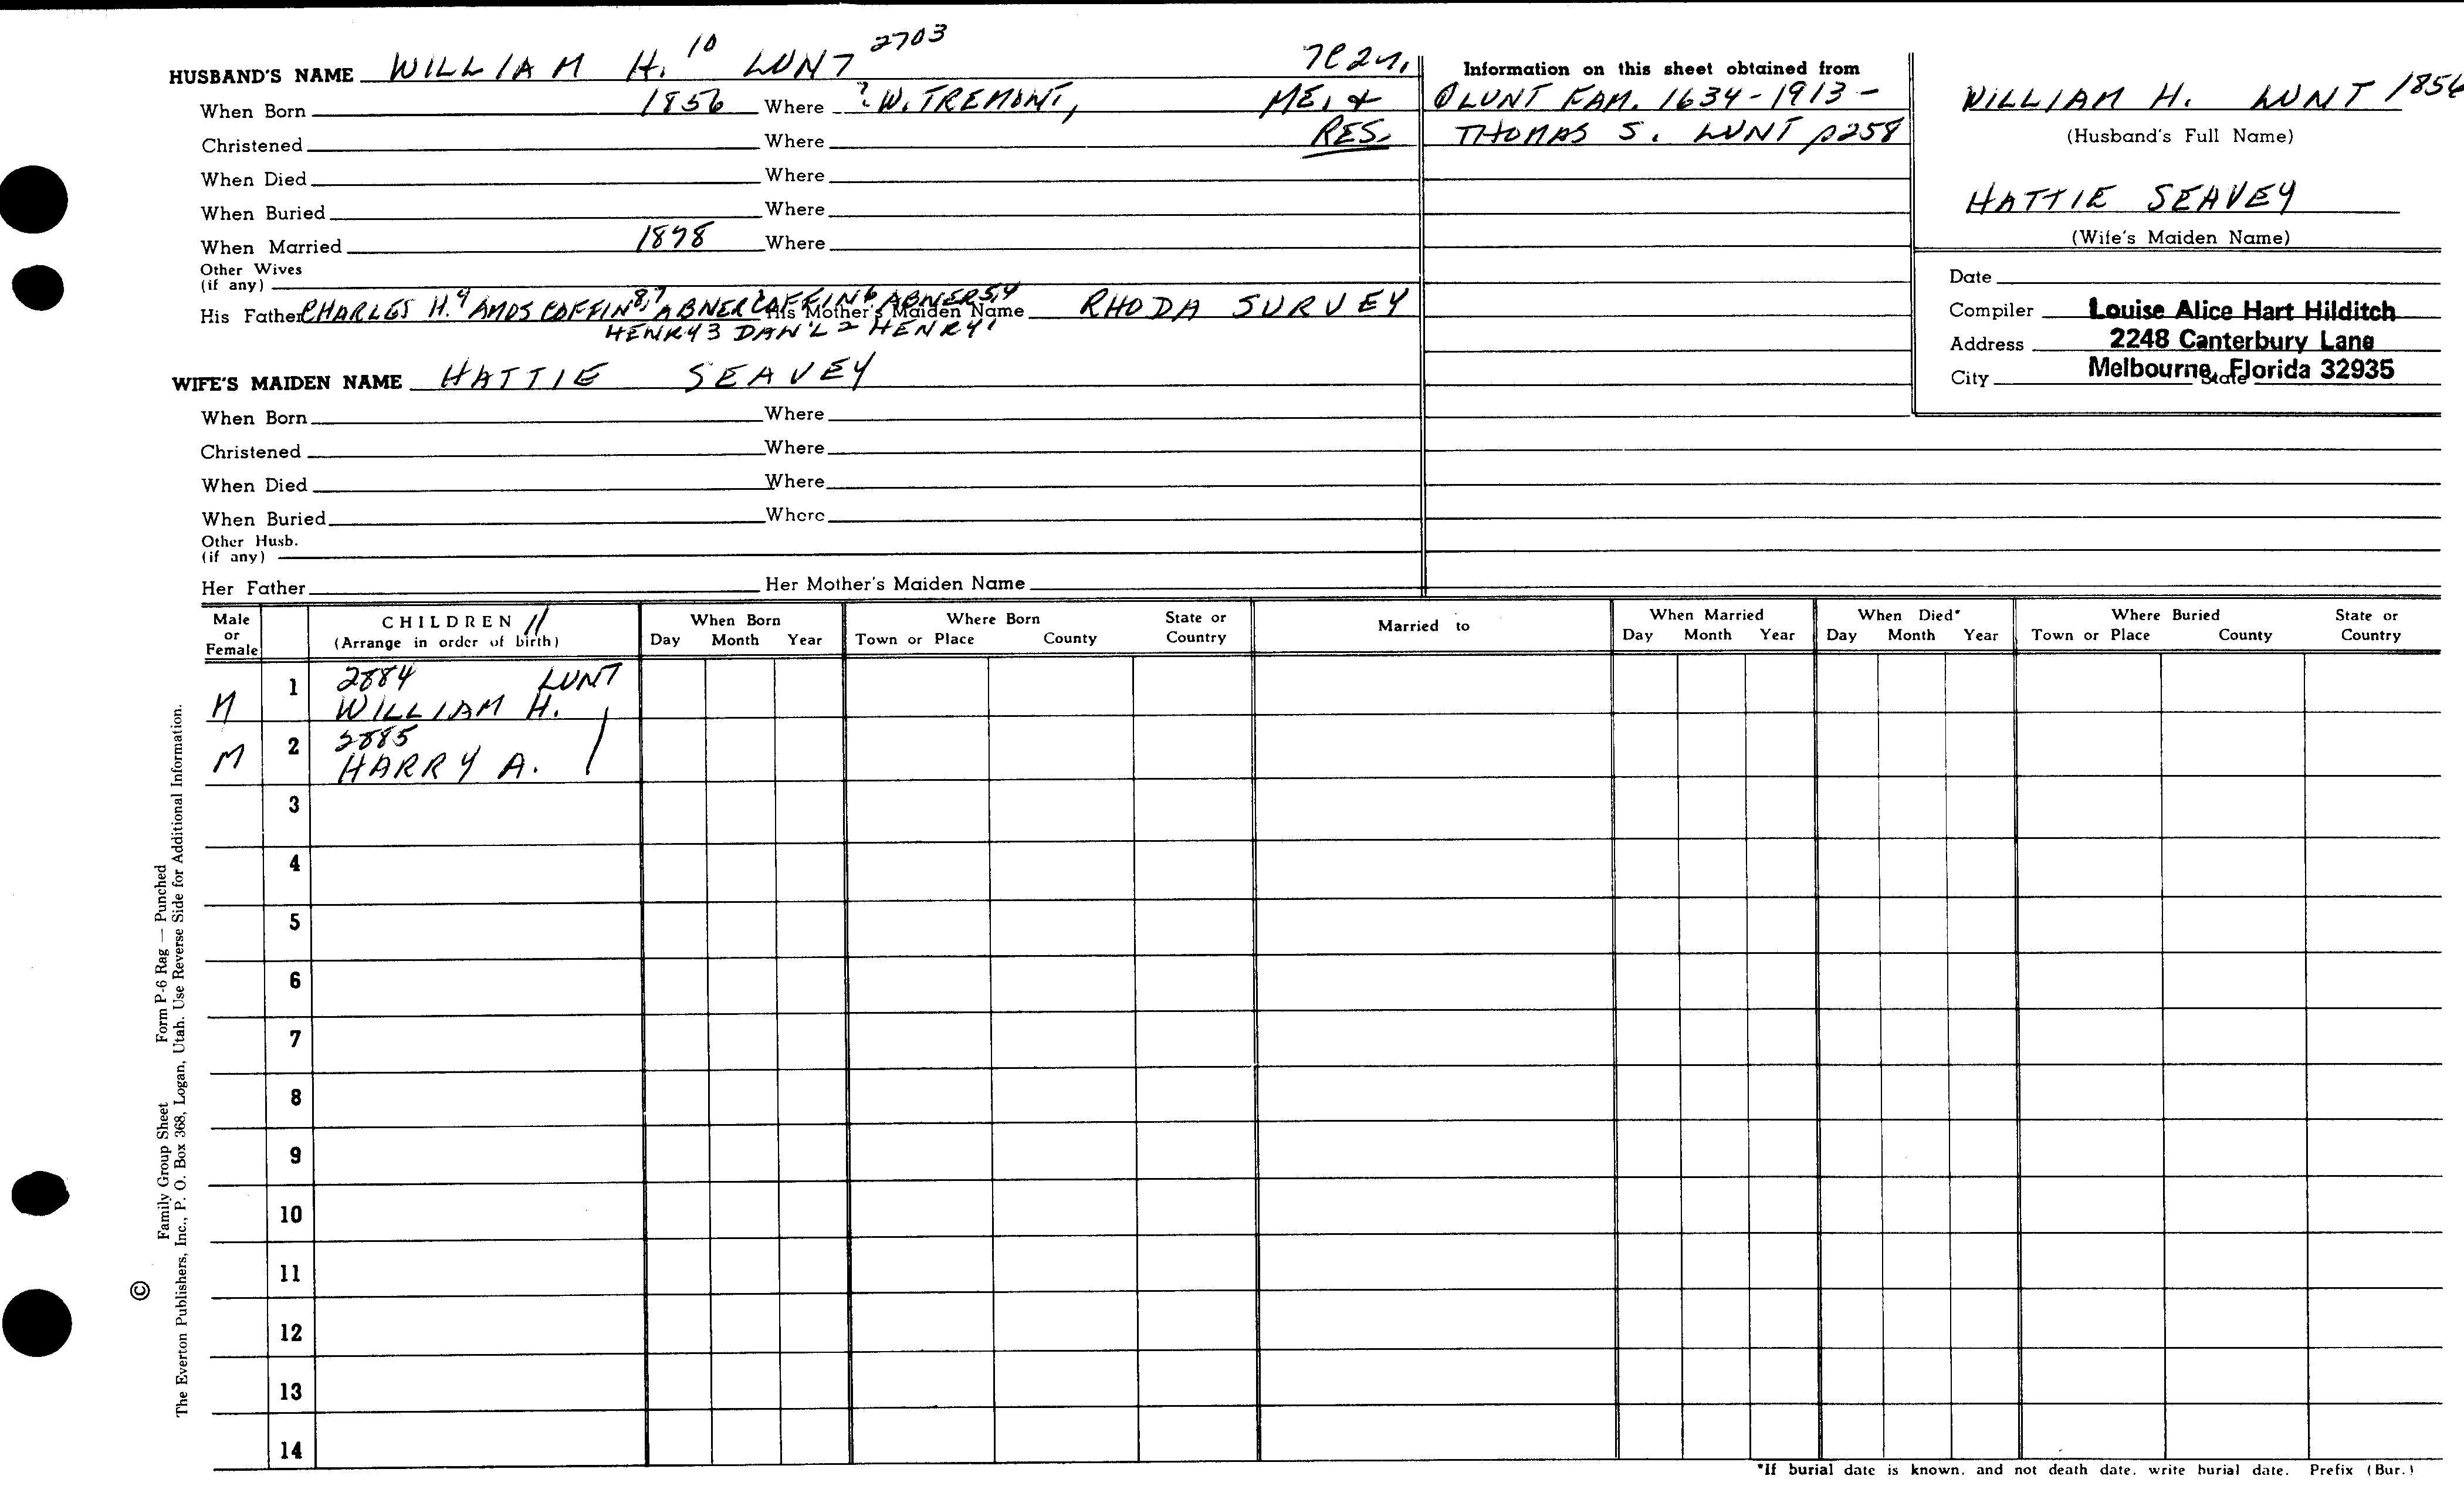 HUSBAND'S NAME WILLIAM H. 10 LUNT 2703
When Born 1856 Where ? W. TREMONT, ME. & RES.
Christened Where
When Died Where
When Buried Where
When Married 1878 Where
Other Wives
(if any)
His Father CHARLES H.9 AMOS COFFIN 8, 7 ABNER COFFIN 6 ABNER 5,4 His Mother's Maiden Name RHODA SURVEY
HENRY 3 DAN'L 2 HENRY 1
WIFE'S MAIDEN NAME HATTIE SEAVEY
When Born Where
Christened Where
When Died Where
When Buried Where
Other Husb.
(if any)
Her Father Her Mother's Maiden Name
Information on this sheet obtained from
LUNT FAM. 1634-1913-
THOMAS S. LUNT p258
WILLIAM H. LUNT 1856
(Husband's Full Name)
HATTIE SEAVEY
(Wife's Maiden Name)
Date
Compiler Louise Alice Hart Hilditch
Address 2248 Canterbury Lane
City Melbourne, Florida 32935 State
Male or Female
CHILDREN 11
(Arrange in order of birth)
When Born
Day Month Year
Where Born
Town or Place County State or Country
Married to
When Married
Day Month Year
When Died*
Day Month Year
Where Buried
Town or Place County State or Country
M 1 2884 LUNT
WILLIAM H.
M 2 2885
HARRY A.
3
4
5
6
7
8
9
10
11
12
13
14
*If burial date is known, and not death date, write burial date. Prefix (Bur.)
© Family Group Sheet Form P-6 Rag — Punched
The Everton Publishers, Inc., P. O. Box 368, Logan, Utah. Use Reverse Side for Additional Information.